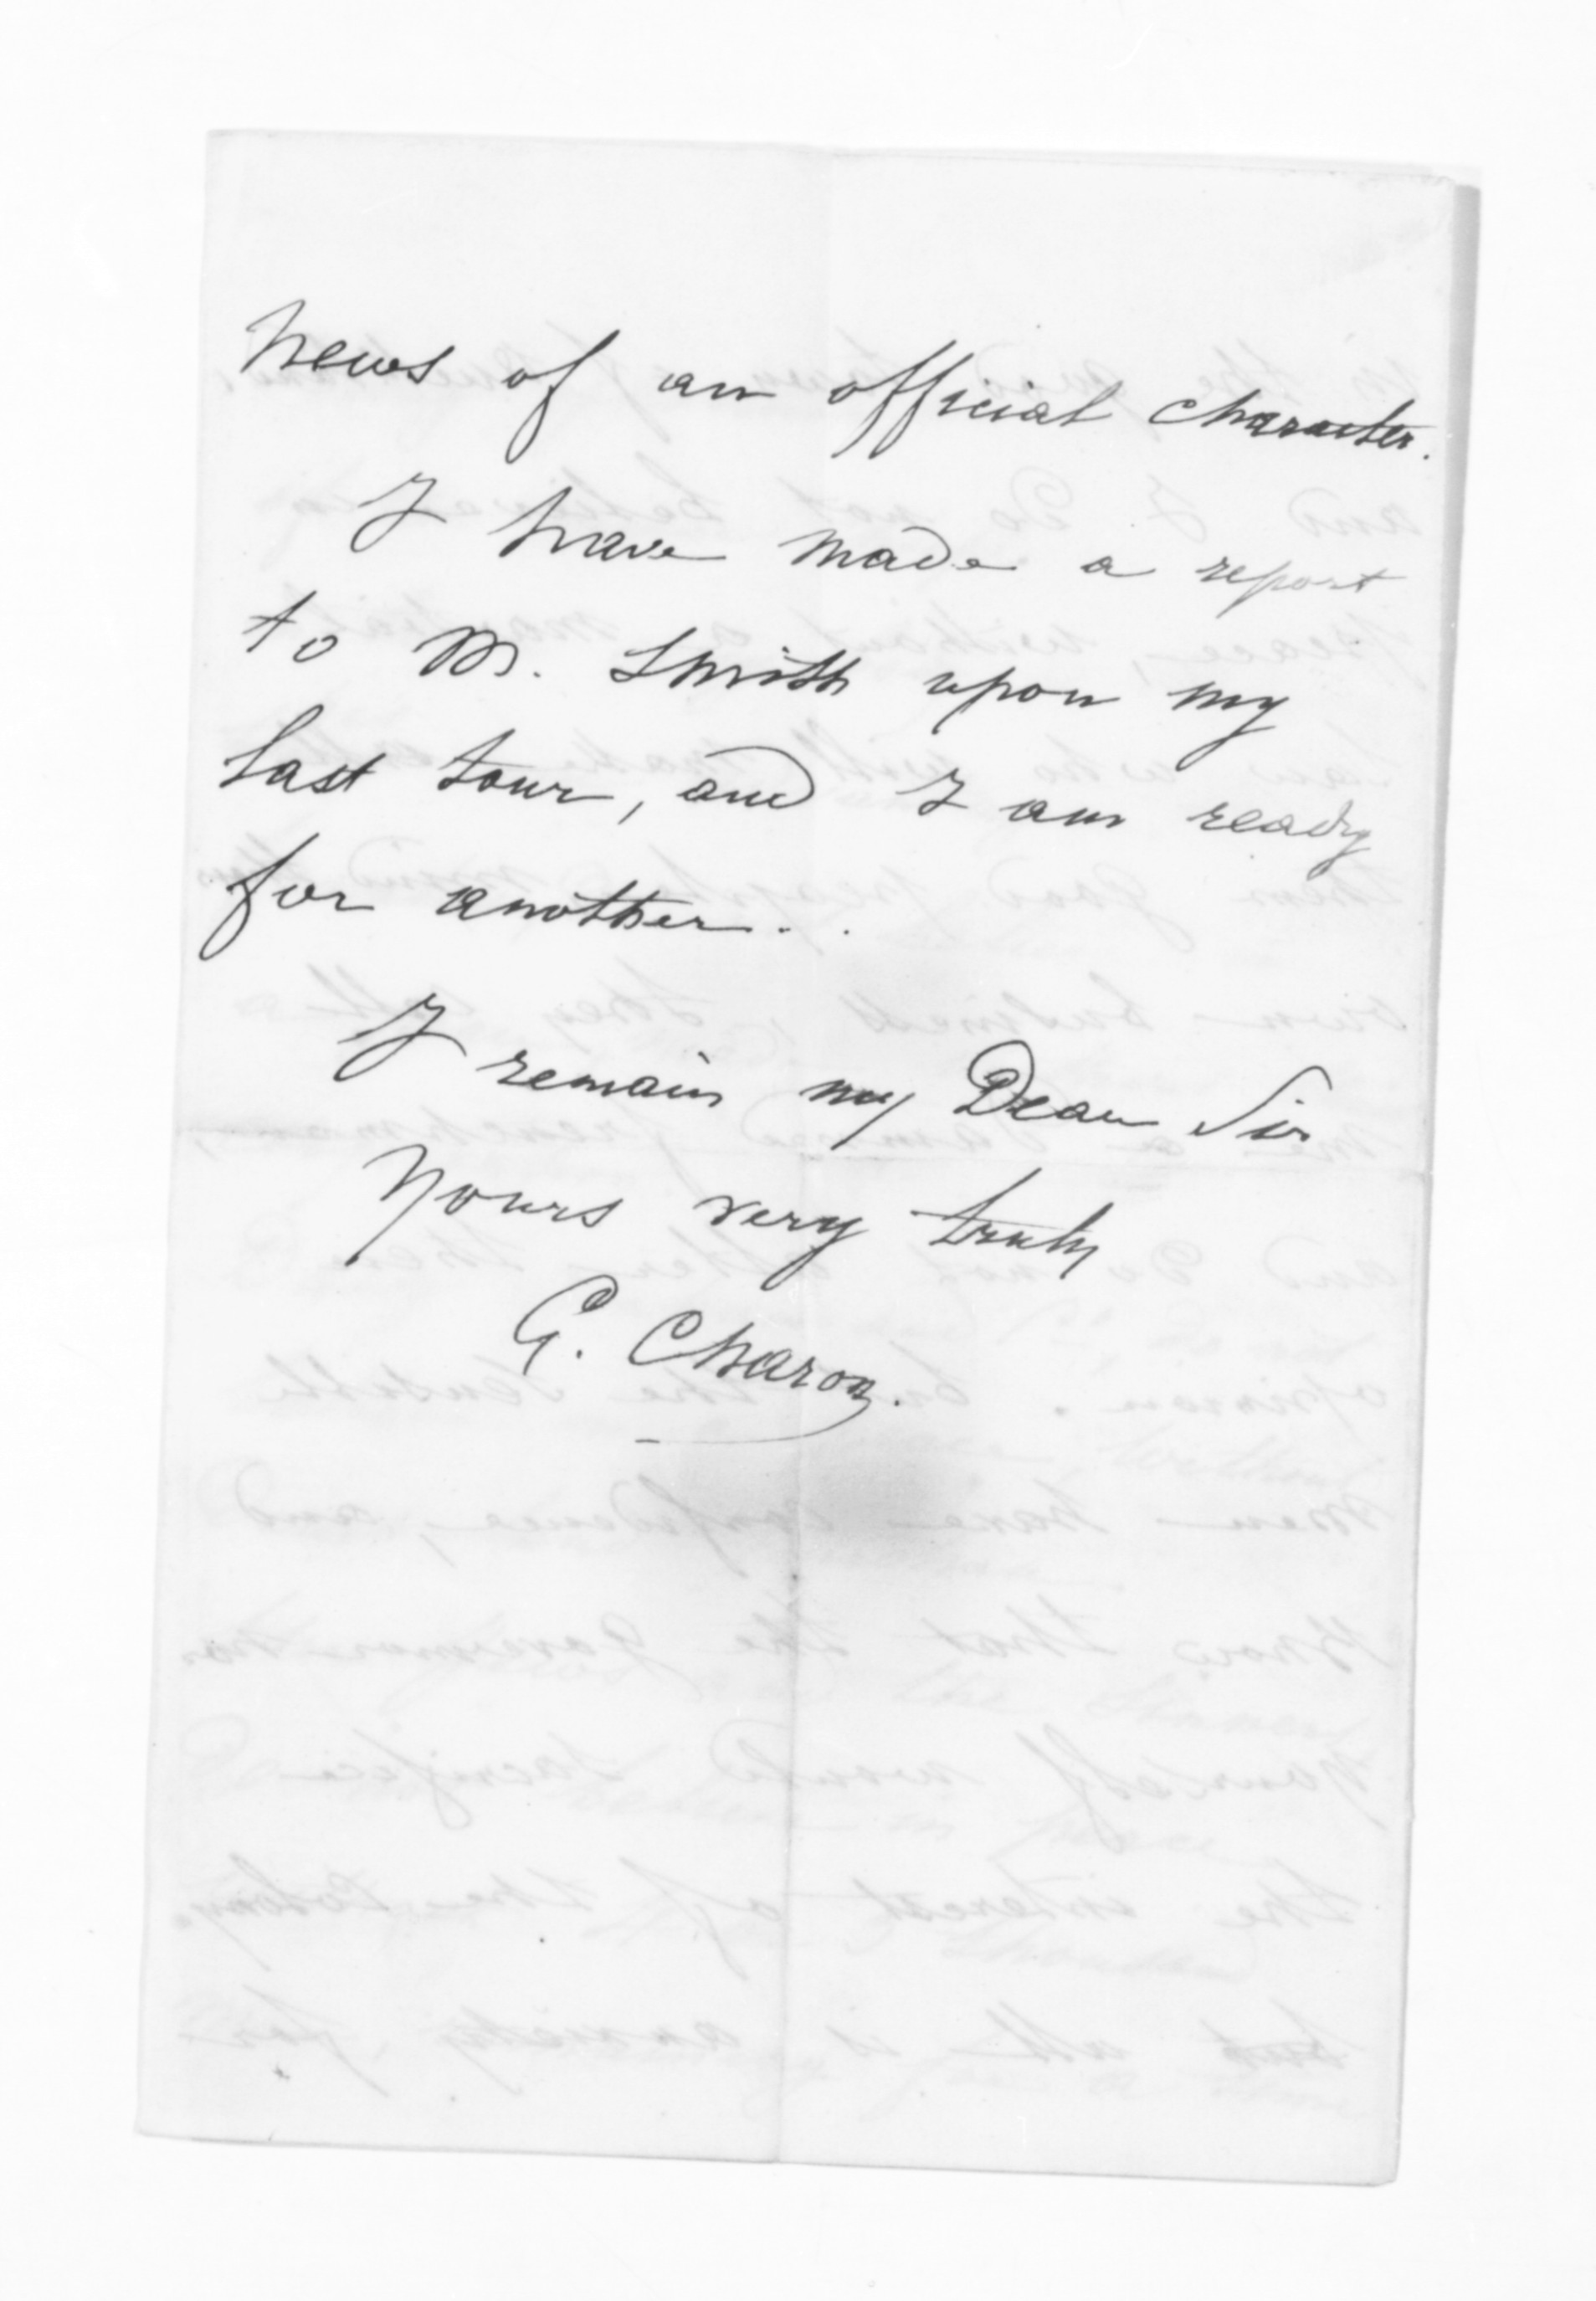 News of an official character.
I have made a report
to Mr. Smith upon my
last tour, and I am ready
for another..
I remain my Dear Sir
Yours very truly
G. Charon.